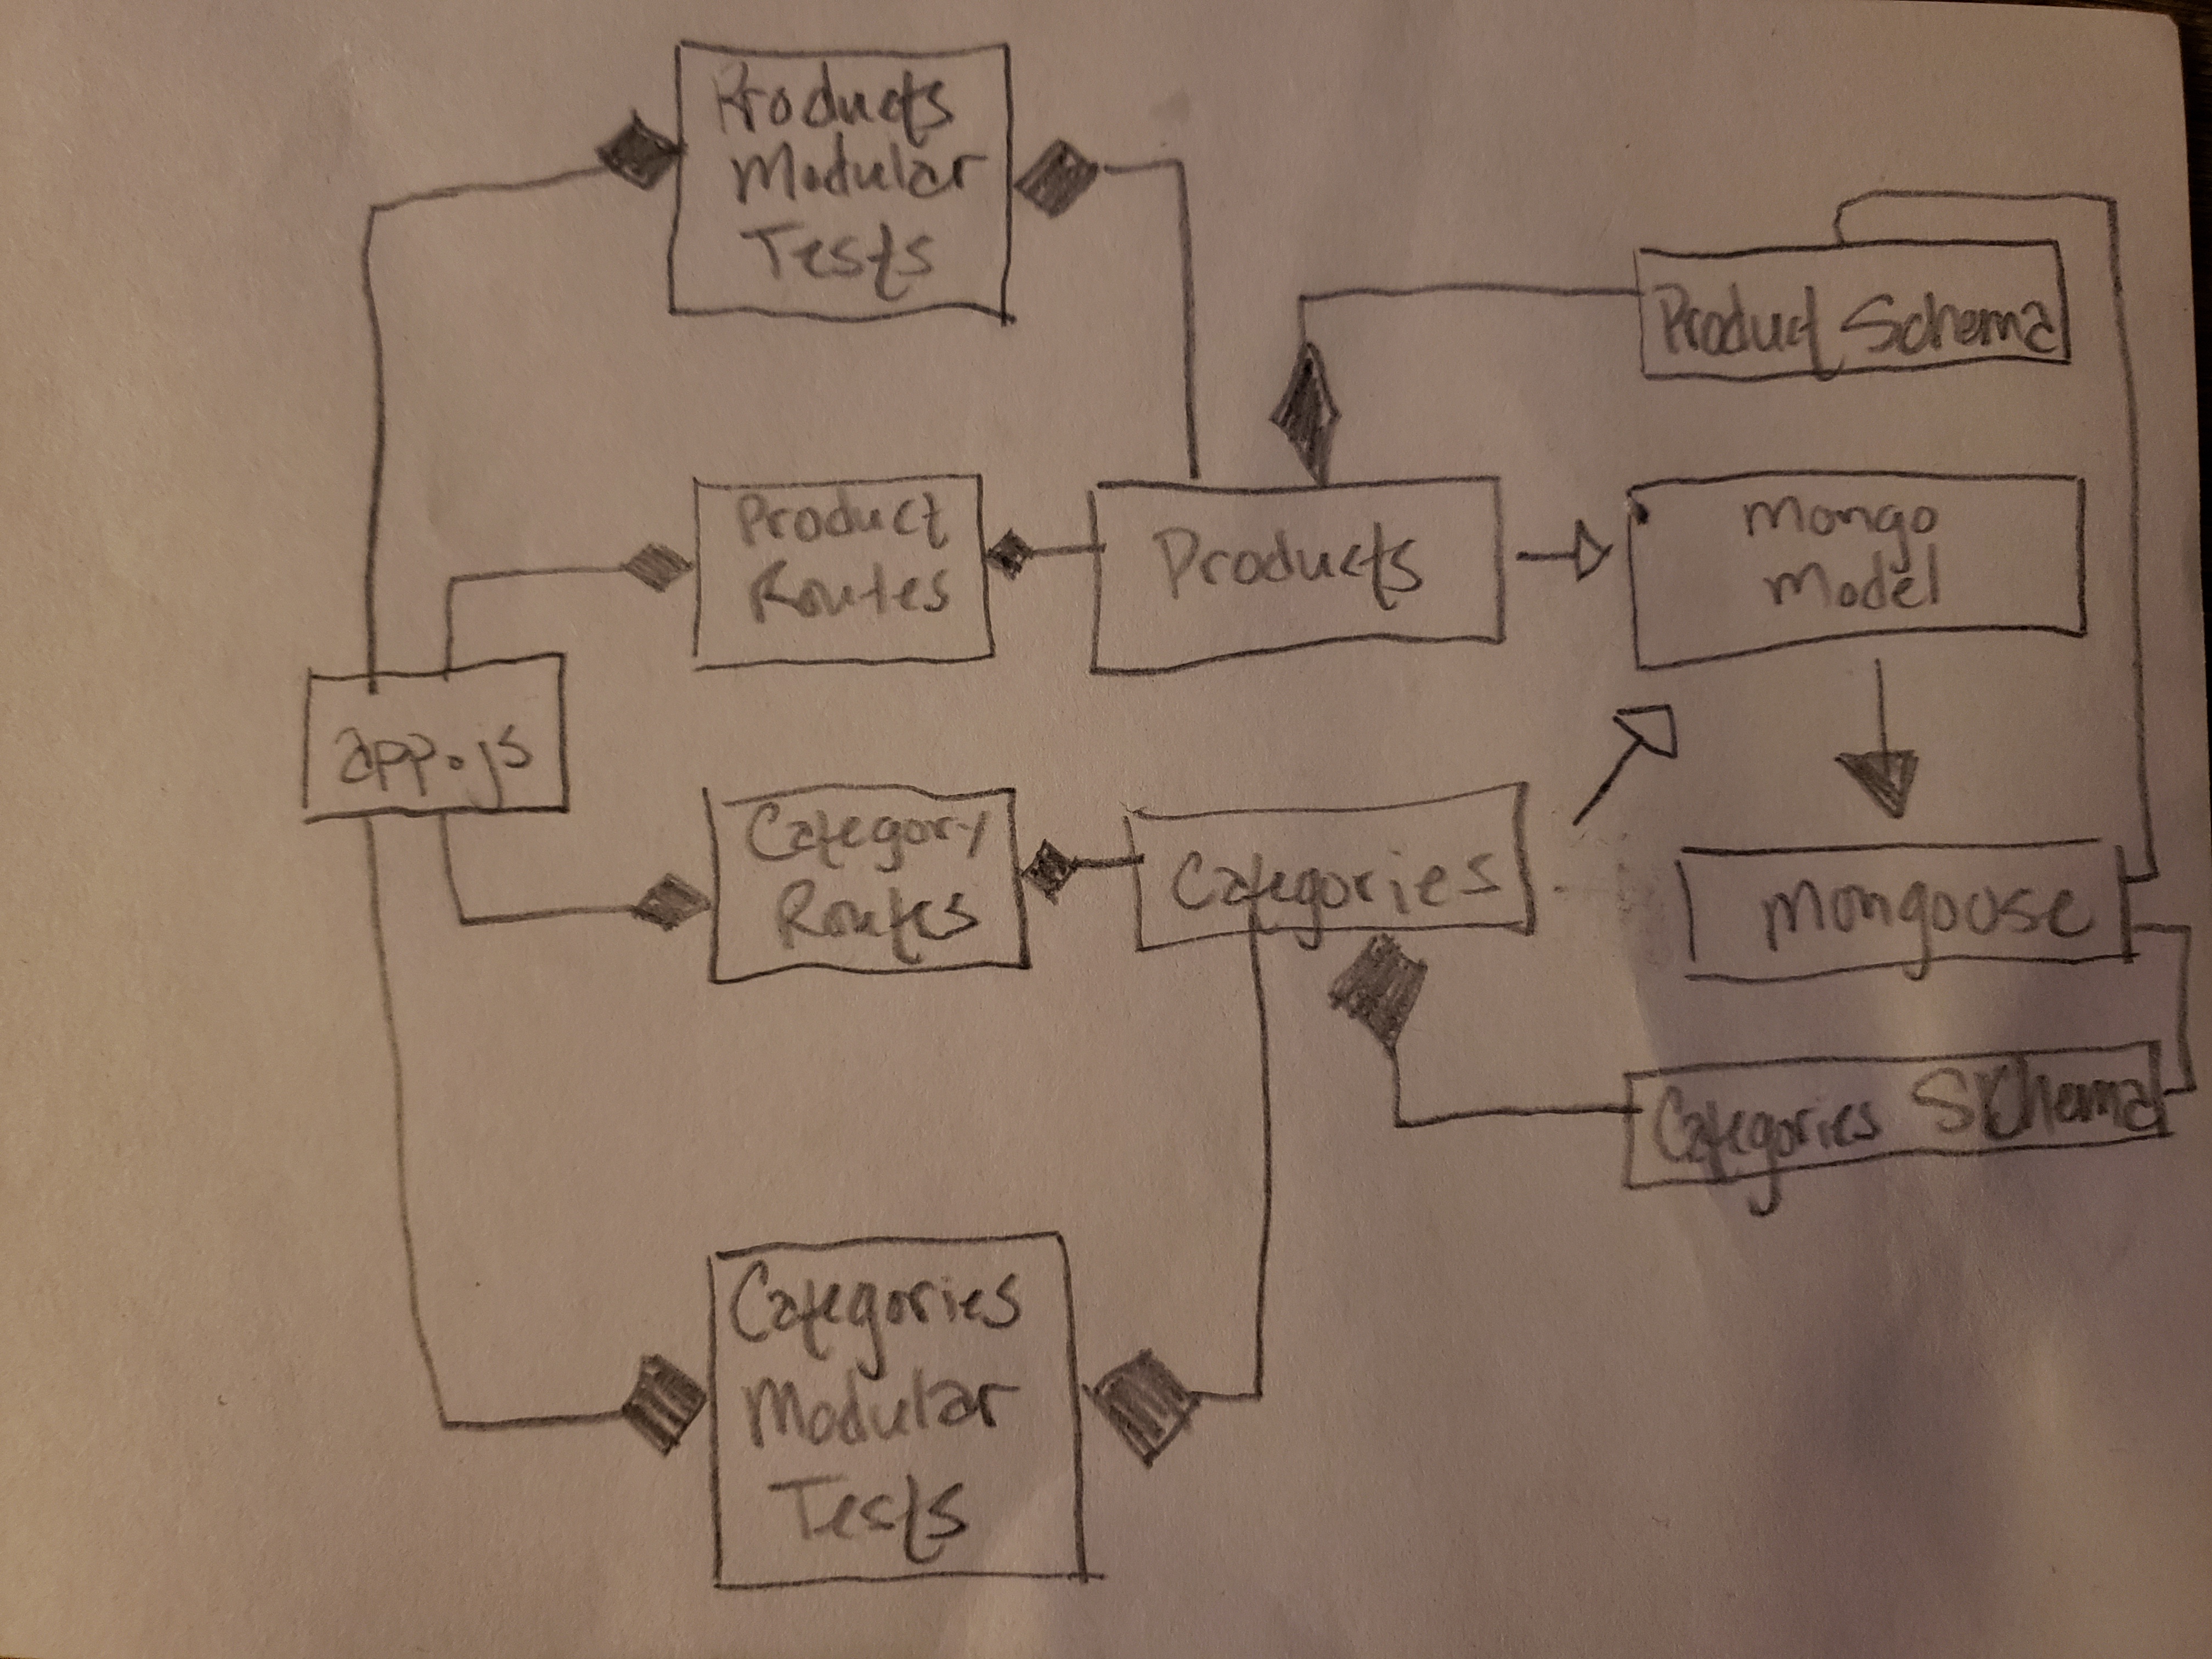 Products
Modular
Tests
Product Schema
Product
Routes
Products
Mongo
Model
app.js
Category
Routes
Categories
Mongoose
Categories Schema
Categories
Modular
Tests